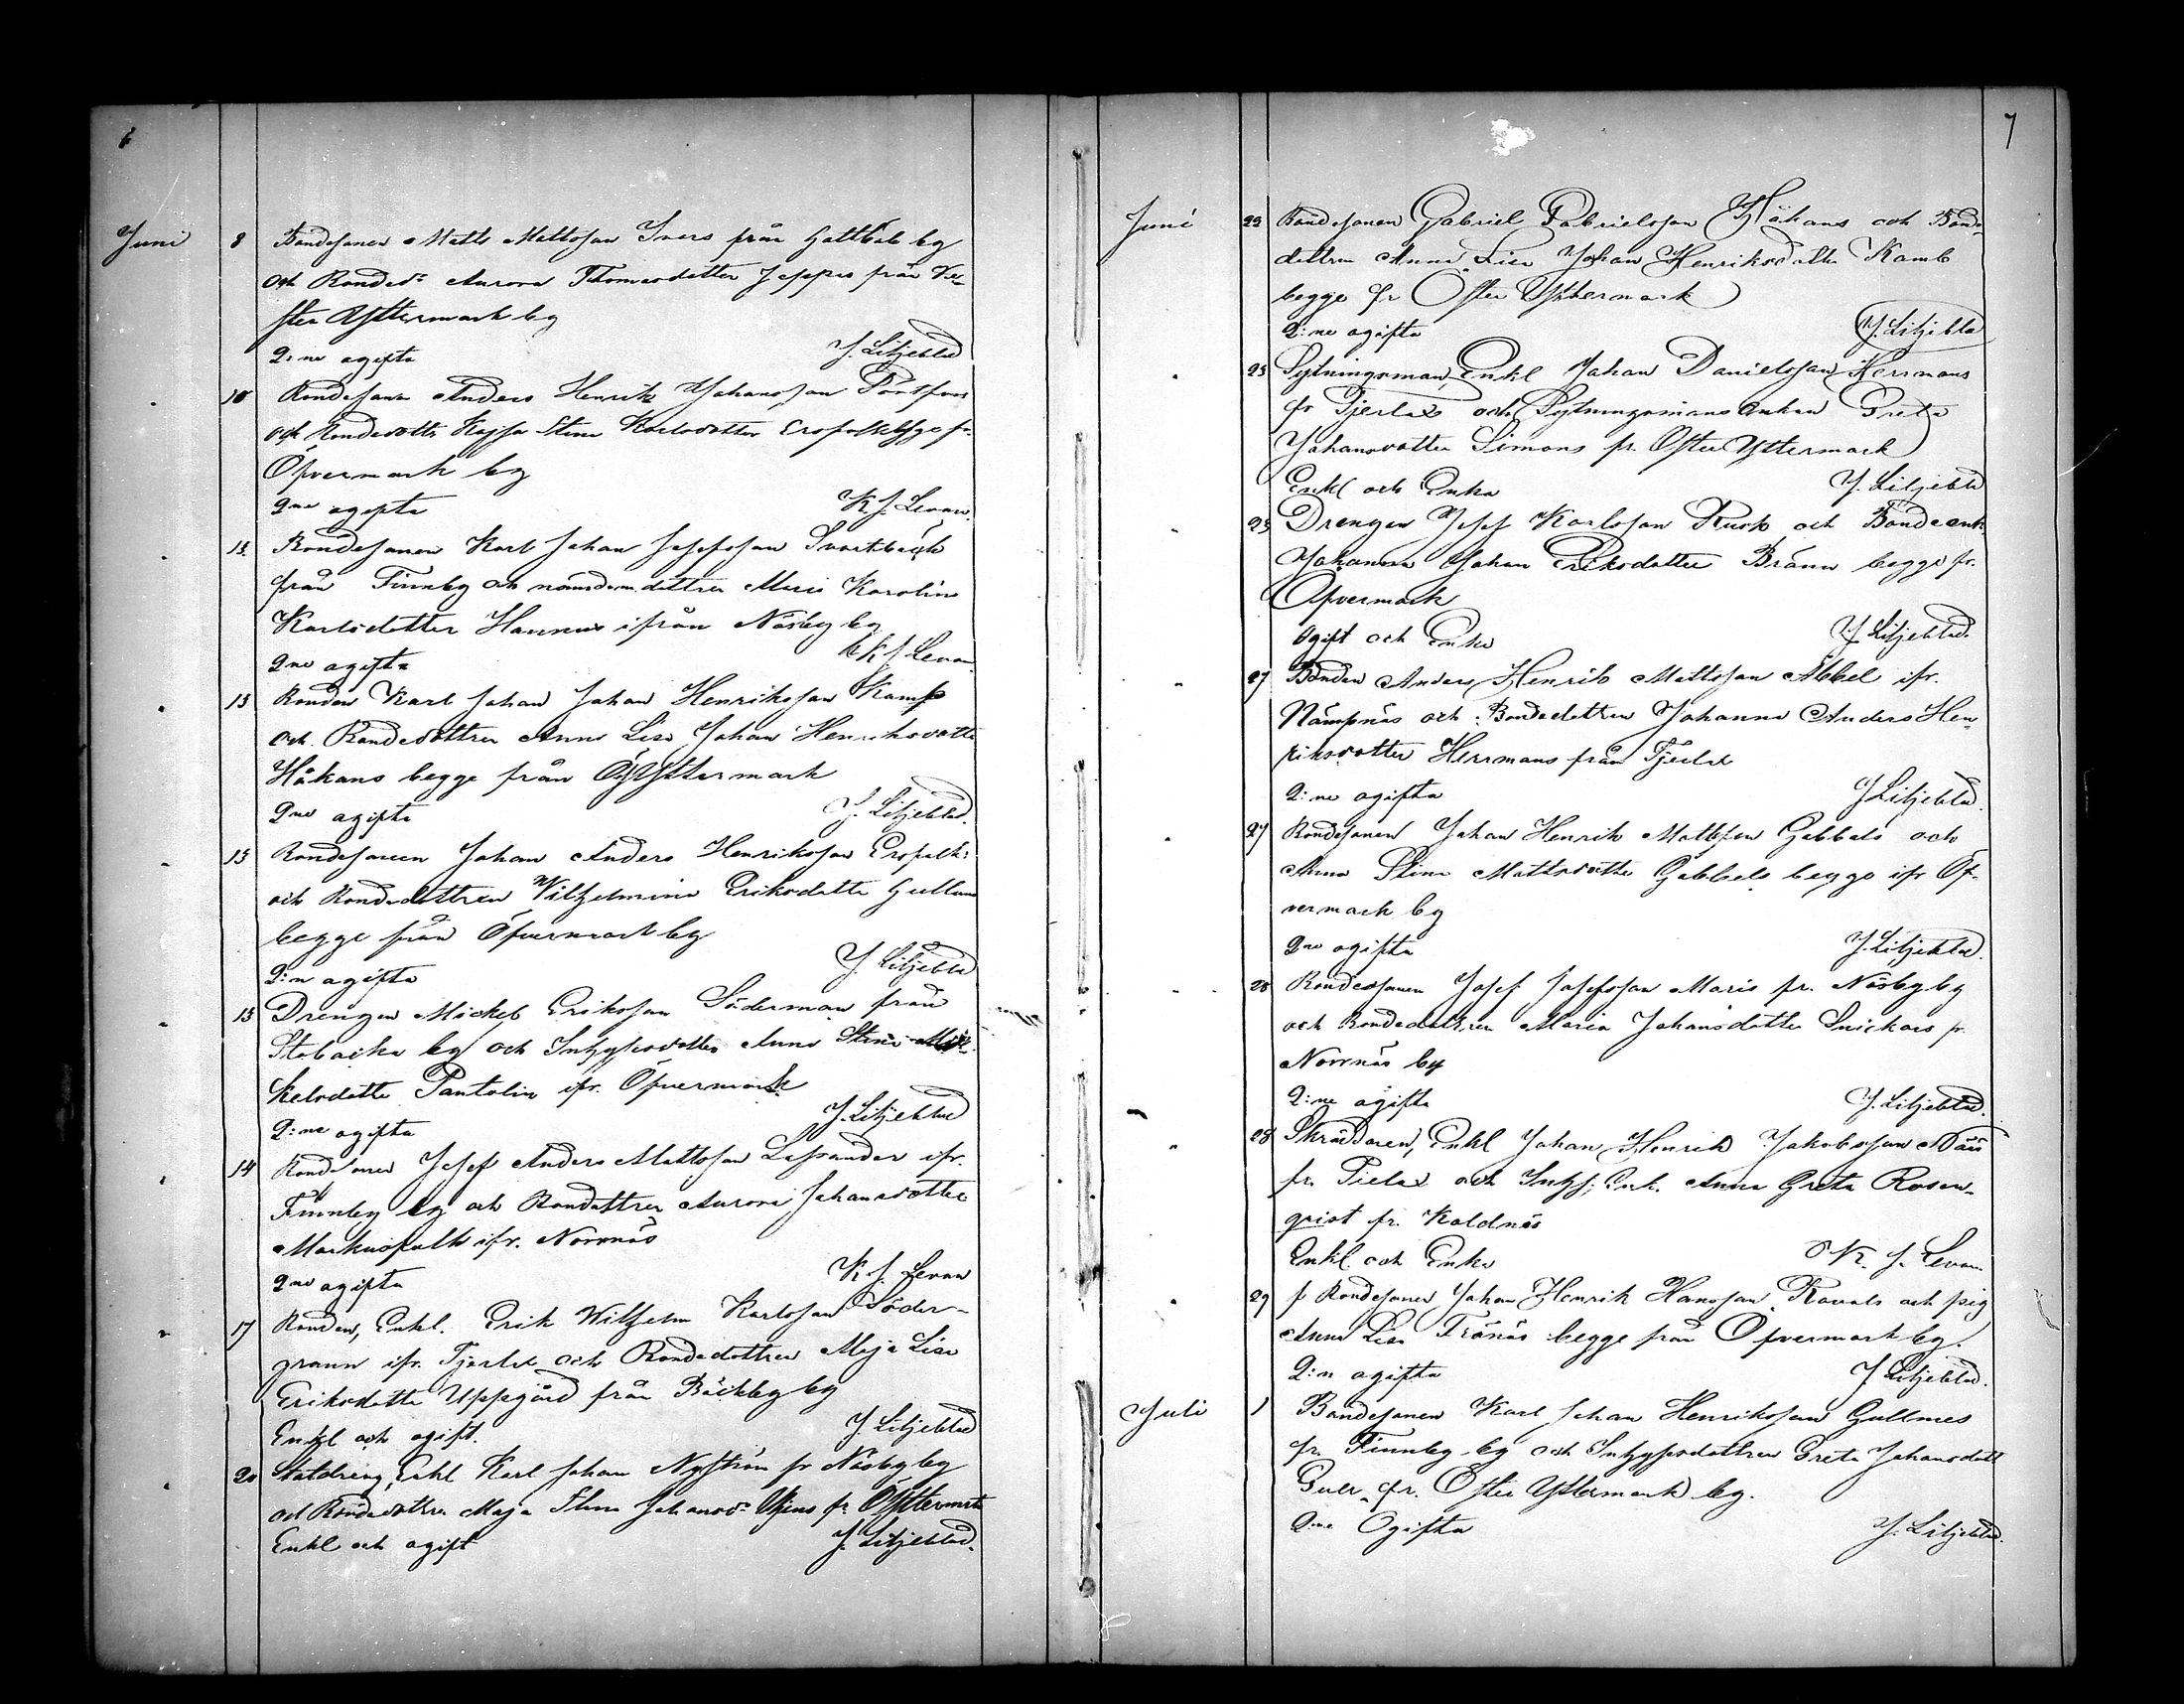 6
Juni
8 Bondesonen Matts Mattsson Ivars från Gottböle by
och Bonded:r Aurora Thomasdotter Jeppas från Ve-
ster Yttermark by
2:ne ogifta J. Liljeblad
10 Bondesonen Anders Henrik Johansson Pörtfors
och Bondedottr Kajsa Stina Karlsdotter Ersfolk begge fr.
Öfvermark by
2ne ogifta K J. Levan.
13 Bondesonen Karl Johan Josefsson Svartbäck
från Finnby och nämdem.dottren Maria Karolina
Karlsdotter Hannus ifrån Näsby by
2ne ogifta K J Levan
13 Bonden Karl Johan Johan Henriksson Kamb
och Bondedottren Anna Lisa Johan Henriksdotter
Håkans begge från Ö Yttermark
2ne ogifta J. Liljeblad.
13 Bondesonen Johan Anders Henriksson Ersfolk
och Bondedottren Wilhelmina Eriksdotter Gullans
begge från Öfvermark by
2:n ogifta J. Liljeblad
13 Drengen Mickel Eriksson Söderman från
Stobacka by och Inhysesdotter Anna Stina Mic-
kelsdotter Pantolin ifr. Öfvermark
2:ne ogifta J. Liljeblad
14 Bondesonen Josef Anders Mattsson Lassander ifr.
Finnby by och Bondedottren Aurora Johansdotter
Markusfolk ifr. Norrnäs
2ne ogifta K J. Levan
17 Bonden, Enkl. Erik Wilhelm Karlsson Söder-
grann ifr. Tjerlax och Bondedottren Maja Lisa
Eriksdotter Uppgård från Bäckby by
Enkl och ogift. J. Liljeblad
20 Statdreng, Enkl Karl Johan Nyström fr Näsby by
och Bondedottren Maja Stina Johansd:r fr. Ö Yttermark
Enkl och ogift J. Liljeblad.
7
Juni
22 Bondesonen Gabriel Gabrielsson Håkans och Bonde-
dottren Anna Lisa Johan Henriksdotter Kamb
begge fr Öster Yttermark
2:ne ogifta J. Liljeblad
23 Sytningsman, Enkl Johan Danielsson Herrmans
fr Tjerlax och Sytningsmans enkan Greta
Johansdotter Simons fr. Öster Yttermark
Enkl och Enka J. Liljeblad
23 Drengen Josef Karlsson Rusk och Bondeenk.
Johanna Johan Eriksdotter Bränn begge fr.
Öfvermark
Ogift och Enka J. Liljeblad.
27 Bonden Anders Henrik Mattsson Abbel ifr.
Nämpnäs och Bondedottren Johanna Anders Hen-
riksdotter Herrmans från Tjerlax
2:ne ogifta J Liljeblad.
27 Bondesonen Johan Henrik Mattsson Gabbels och
Anna Stina Mattsdotter Gabbels begge ifr Öf-
vermark by
2ne ogifta J. Liljeblad.
28 Bondesonen Josef Josefsson Maris fr. Näsby by
och Bondedottren Maria Johansdotter Snickars fr.
Norrnäs by
2:ne ogifta J. Liljeblad.
28 Skräddaren, Enkl Johan Henrik Jakobsson
fr. Pielax och Inhys: Enk. Anna Greta Rosen-
qvist fr. Kaldnäs
Enkl. och Enka K. J. Levan.
29 f Bondesonen Johan Henrik Hansson Ravals och pig
Anna Lisa Tränäs begge från Öfvermark by.
2:n ogifta J Liljeblad.
Juli
1 Bondesonen Karl Johan Henriksson Gullmes
fr. Finnby by och Inhysesdottren Greta Johansdott
fr. Öster Yttermark by.
2:ne Ogifta J. Liljeblad.